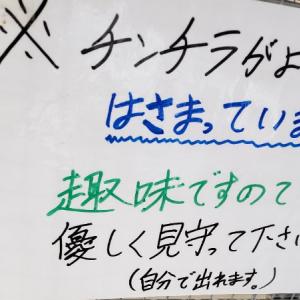 ※ チンチラがよ
はさまっていま
趣味ですので
優しく見守って下さい
(自分で出れます。)